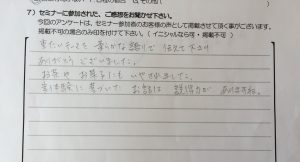 7）セミナーに参加された、ご感想をお聞かせ下さい。
今回のアンケートは、セミナー参加者のお客様の声として掲載させて頂く事がございます。
掲載不可の場合のみ印を付けて下さい。（ イニシャルなら可 ・ 掲載不可 ）
重たいテーマを 柔らかな 語り で 伝えて下さり
ありがとう ございました。
お茶や お菓子にも いやされました。
実体験に 基づいた お話は 説得力が ありますね。